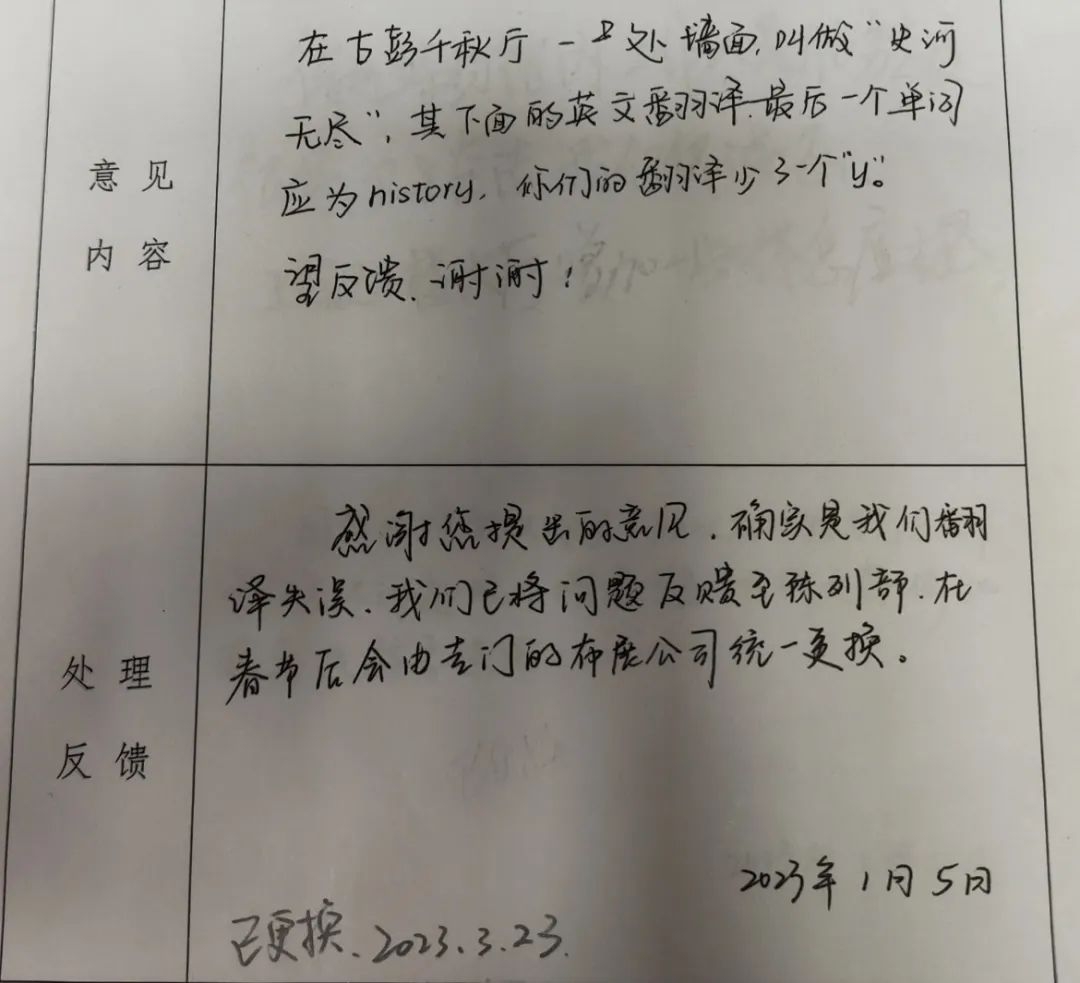 在古彭千秋厅一处墙面,叫做“史河
无尽”,其下面的英文翻译最后一个单词
应为history,你们的翻译少了一个“y”。
望反馈、谢谢!
意见
内容
感谢您提出的意见,确实是我们翻
译失误、我们已将问题反馈至陈列部、在
春节后会由专门的布展公司统一更换。
处理
反馈
2023年1月5日
已更换、2023.3.23.